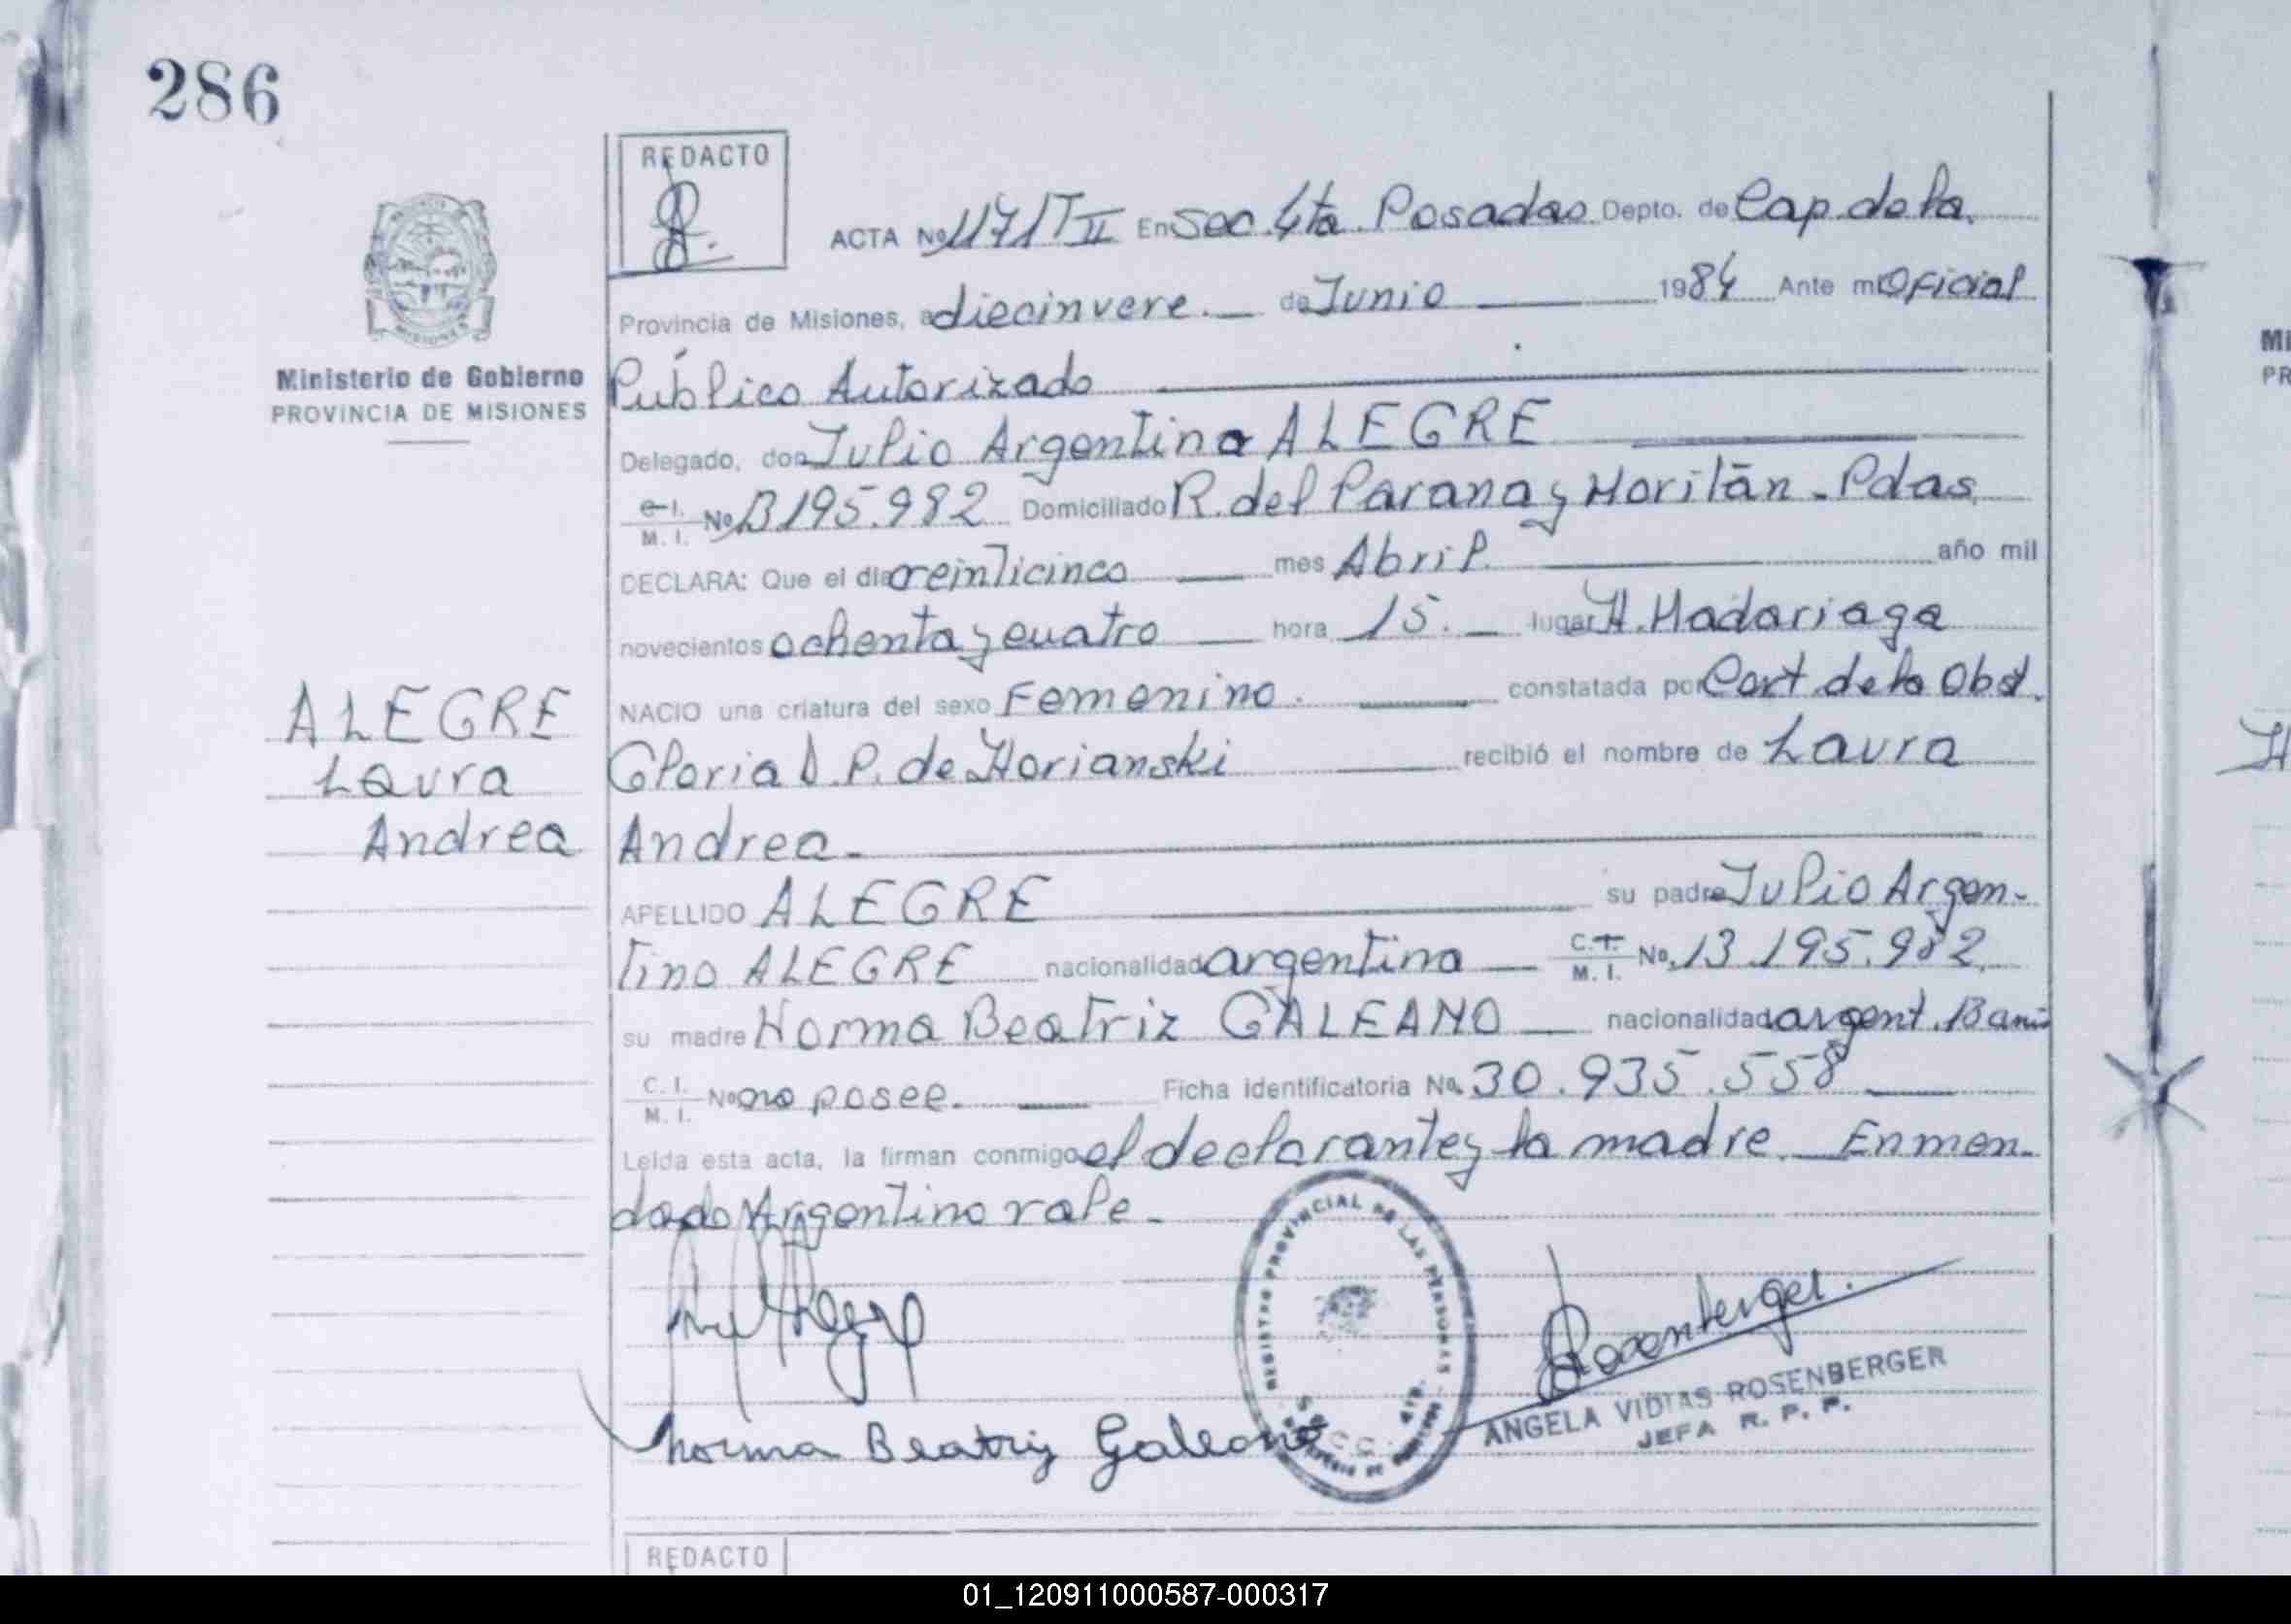 286
REDACTO
ACTA Nº 1171 T II En Sec. 4ta. Posadas Depto. de Cap. de la
Provincia de Misiones, a diecinueve. de Junio 1984 Ante mi Oficial
Ministerio de Gobierno
PROVINCIA DE MISIONES
Público Autorizado
Delegado, don Julio Argentino ALEGRE
C.I. M.I. Nº 13195.982 Domiciliado R. del Parana y Moritán - Pdas.
DECLARA: Que el día veinticinco mes Abril. año mil
novecientos ochenta y cuatro hora 15. lugar H. Madariaga
NACIO una criatura del sexo Femenino. constatada por Cert. de la Obst.
Gloria D. P. de Horianski recibió el nombre de Laura
Andrea.
ALEGRE
Laura
Andrea
APELLIDO ALEGRE su padre Julio Argen-
tino ALEGRE nacionalidad argentina C.I. M.I. No. 13.195.982.
su madre Norma Beatriz GALEANO nacionalidad argent. 13 años
C.I. M.I. Nº no posee. Ficha identificatoria No. 30.935.558
Leída esta acta, la firman conmigo el declarante y la madre. Enmen-
dado Argentino vale.
REGISTRO PROVINCIAL DE LAS PERSONAS
Rosenberger.
ANGELA VIDIAS ROSENBERGER
JEFA R. P. P.
Norma Beatriz Galeano
REDACTO
01_120911000587-000317